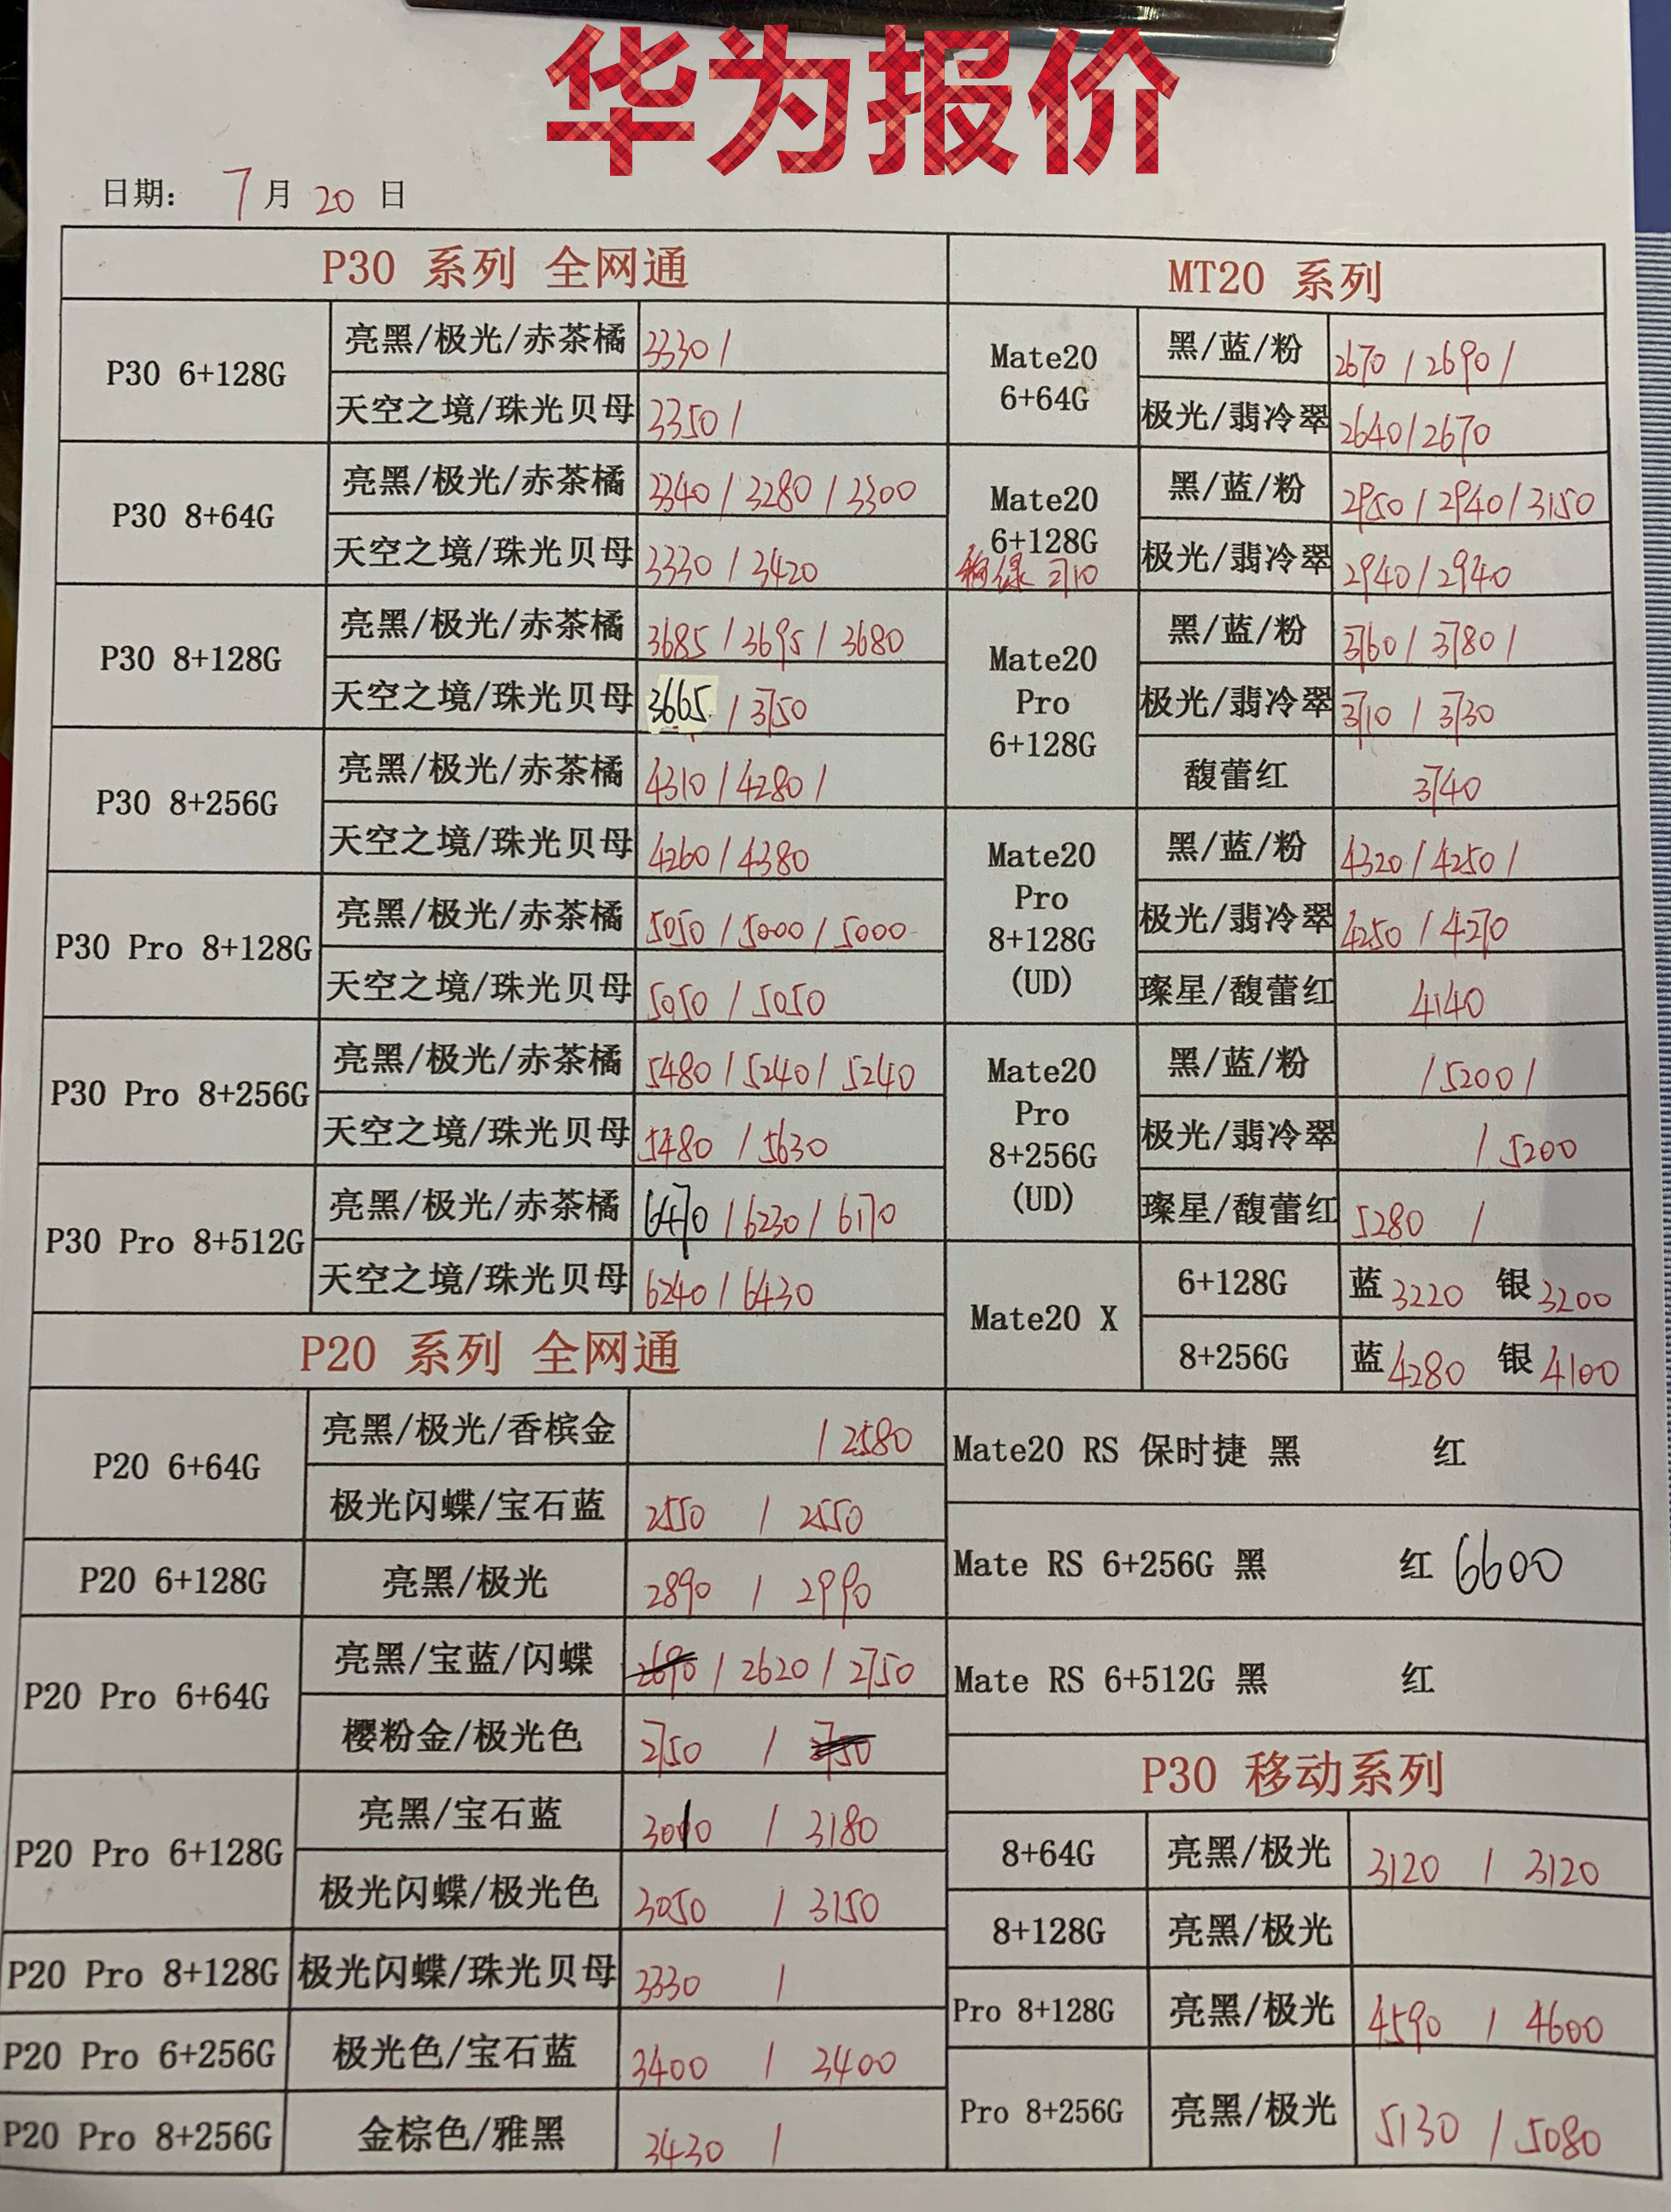 华为报价
日期: 7 月 20 日
P30 系列 全网通
P30 6+128G
亮黑/极光/赤茶橘 3330 /
天空之境/珠光贝母 3350 /
P30 8+64G
亮黑/极光/赤茶橘 3340 / 3280 / 3300
天空之境/珠光贝母 3330 / 3420
P30 8+128G
亮黑/极光/赤茶橘 3685 / 3695 / 3680
天空之境/珠光贝母 3665 / 3750
P30 8+256G
亮黑/极光/赤茶橘 4310 / 4280 /
天空之境/珠光贝母 4260 / 4380
P30 Pro 8+128G
亮黑/极光/赤茶橘 5050 / 5000 / 5000
天空之境/珠光贝母 5050 / 5050
P30 Pro 8+256G
亮黑/极光/赤茶橘 5480 / 5240 / 5240
天空之境/珠光贝母 5480 / 5630
P30 Pro 8+512G
亮黑/极光/赤茶橘 6470 / 6230 / 6170
天空之境/珠光贝母 6240 / 6430
P20 系列 全网通
P20 6+64G
亮黑/极光/香槟金 / 2580
极光闪蝶/宝石蓝 2550 / 2550
P20 6+128G 亮黑/极光 2890 / 2990
P20 Pro 6+64G
亮黑/宝蓝/闪蝶 2690 / 2620 / 2750
樱粉金/极光色 2750 /
P20 Pro 6+128G
亮黑/宝石蓝 3010 / 3180
极光闪蝶/极光色 3050 / 3150
P20 Pro 8+128G 极光闪蝶/珠光贝母 3330 /
P20 Pro 6+256G 极光色/宝石蓝 3400 / 3400
P20 Pro 8+256G 金棕色/雅黑 3430 /
MT20 系列
Mate20
6+64G
黑/蓝/粉 2670 / 2690 /
极光/翡冷翠 2640 / 2670
Mate20
6+128G
绿 2710
黑/蓝/粉 2950 / 2940 / 3150
极光/翡冷翠 2940 / 2940
Mate20
Pro
6+128G
黑/蓝/粉 3760 / 3780 /
极光/翡冷翠 3710 / 3730
馥蕾红 3740
Mate20
Pro
8+128G
(UD)
黑/蓝/粉 4320 / 4250 /
极光/翡冷翠 4250 / 4270
璨星/馥蕾红 4140
Mate20
Pro
8+256G
(UD)
黑/蓝/粉 / 5200 /
极光/翡冷翠 / 5200
璨星/馥蕾红 5280 /
Mate20 X
6+128G 蓝 3220 银 3200
8+256G 蓝 4280 银 4100
Mate20 RS 保时捷 黑 红
Mate RS 6+256G 黑 红 6600
Mate RS 6+512G 黑 红
P30 移动系列
8+64G 亮黑/极光 3120 / 3120
8+128G 亮黑/极光
Pro 8+128G 亮黑/极光 4590 / 4600
Pro 8+256G 亮黑/极光 5130 / 5080